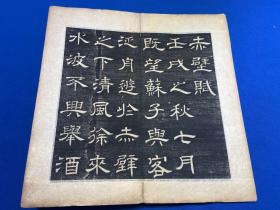 赤壁賦
壬戌之秋七月
既望蘇子與客
泛舟遊於赤壁
之下清風徐來
水波不興舉酒